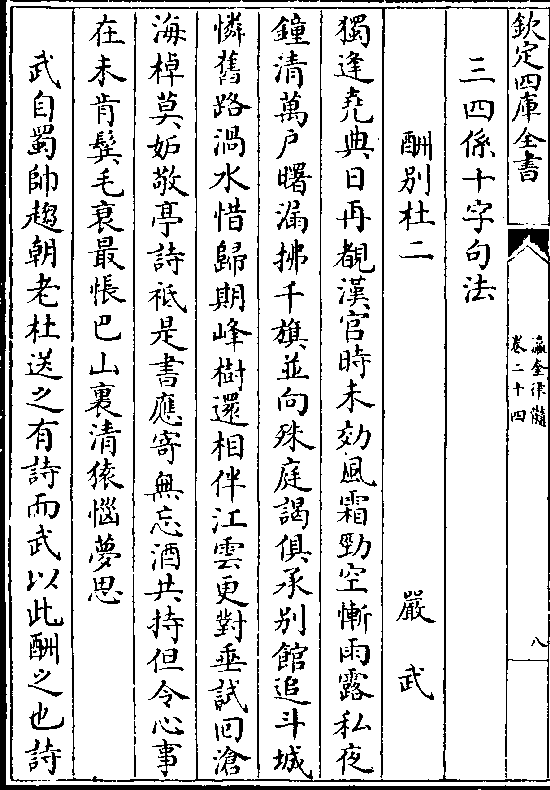 欽定四庫全書
瀛奎律髓
卷二十四
八
三四係十字句法
酬別杜二　嚴武
獨逢堯典日再覩漢官時未効風霜勁空慚雨露私夜
鐘清萬戸曙漏拂千旗並向殊庭謁俱承别館追斗城
憐舊路渦水惜歸期峰樹還相伴江雲更對垂試囘滄
海棹莫妒敬亭詩祇是書應寄無忘酒共持但令心事
在未肯鬂毛衰最悵巴山裏清猿惱夢思
武自蜀帥趨朝老杜送之有詩而武以此酬之也詩